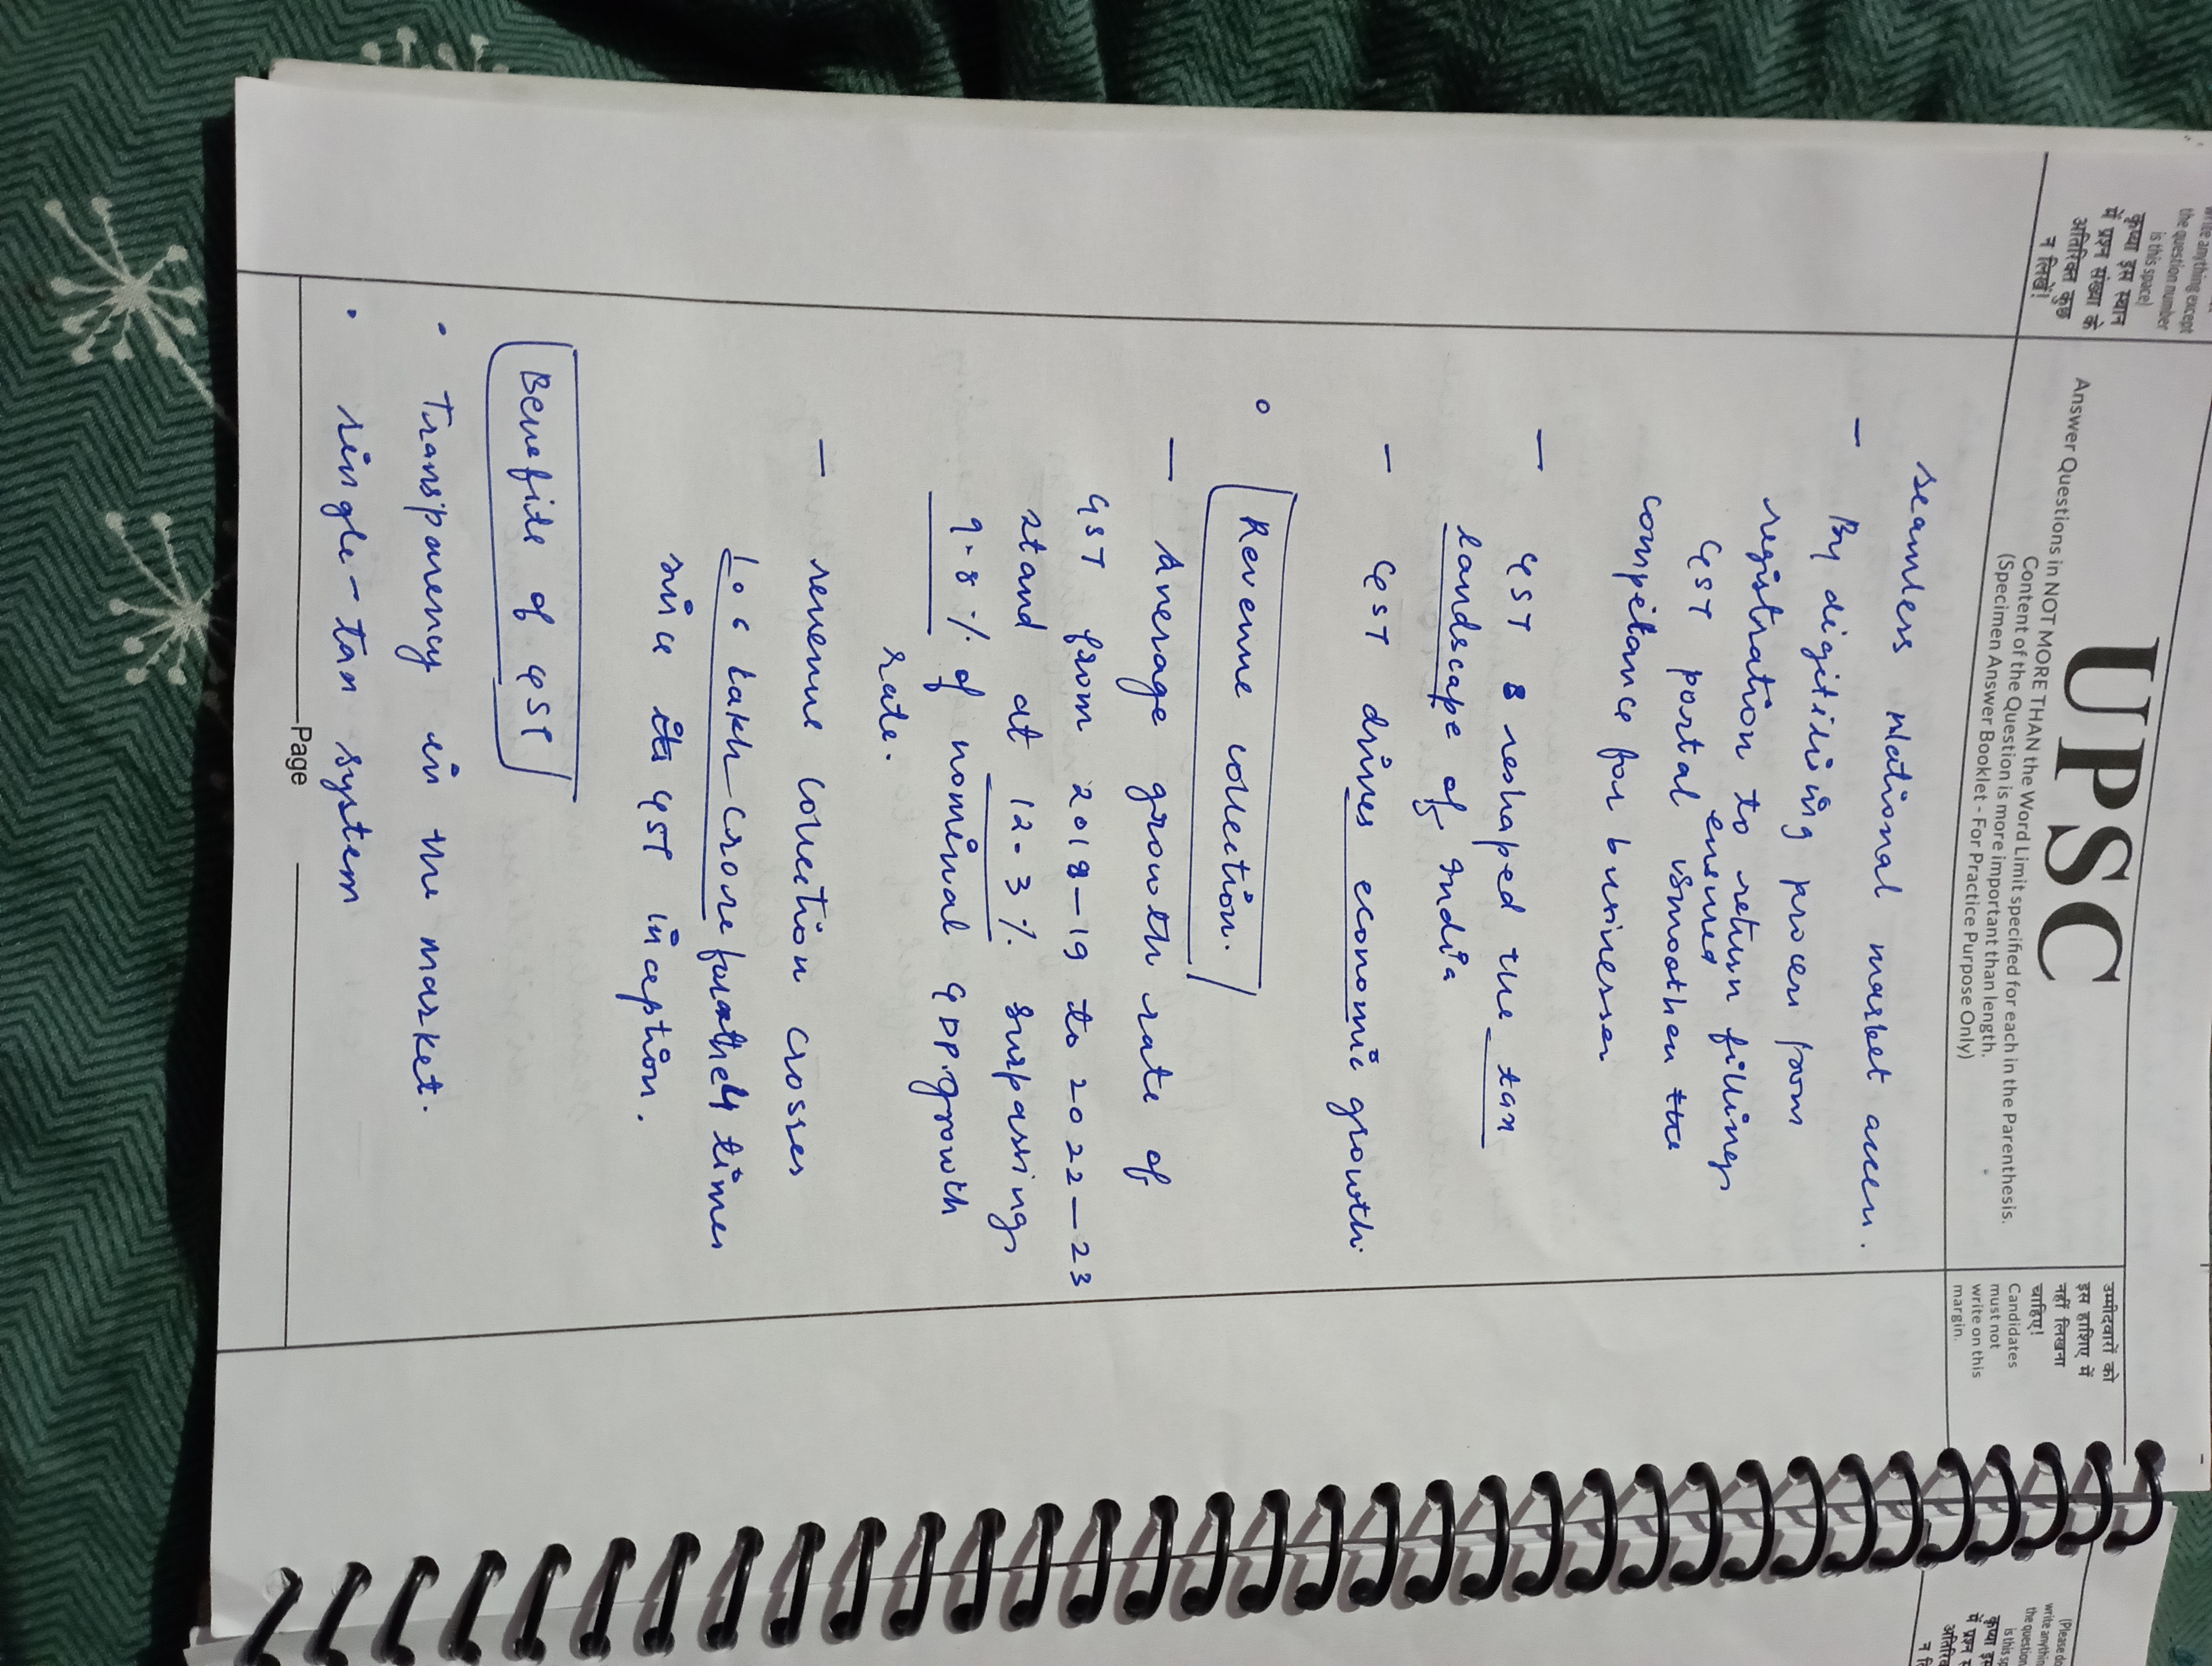 write anything except
the question number
is this space)
कृप्या इस स्थान
में प्रश्न संख्या के
अतिरिक्त कुछ
न लिखें!
UPSC
Answer Questions in NOT MORE THAN the Word Limit specified for each in the Parenthesis.
Content of the Question is more important than length.
(Specimen Answer Booklet - For Practice Purpose Only)
उम्मीदवारों को
इस हाशिए में
नहीं लिखना
चाहिए!
Candidates
must not
write on this
margin.
seamless national market access.
— By digitilising process from
registration to return fillings
GST portal ensured smoothen the
competance for businesses
— GST reshaped the tax
landscape of India
— GST drives economic growth.
Revenue collection.
— Average growth rate of
GST from 2018-19 to 2022-23
stand at 12.3% surpassing
9.8% of nominal GDP growth
rate.
— revenue collection crosses
1.6 Lakh crore for the 4 times
since its GST inception.
Benefits of GST
• Transparency in the market.
• single-tax system
Page
(Please do
write anythin
the question
is this sp
कृप्या इस